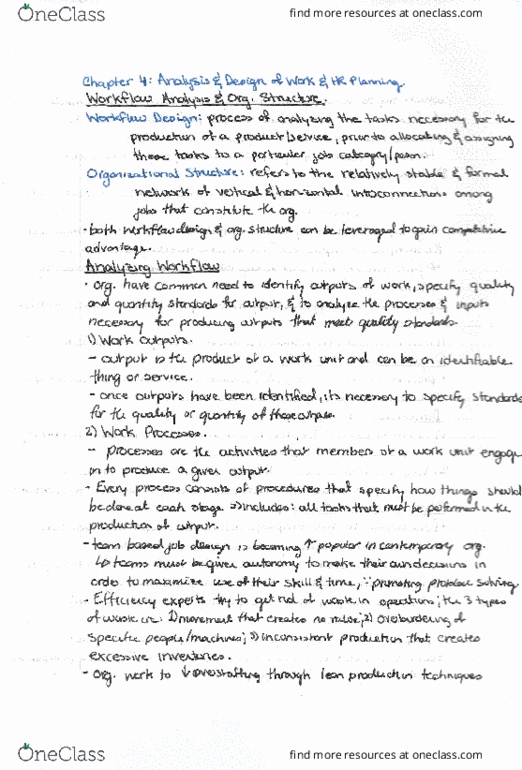 OneClass
find more resources at oneclass.com
Chapter 4: Analysis & Design of Work & HR Planning.
Workflow Analysis & Org. Structure.
Workflow Design: process of analyzing the tasks necessary for the
production of a product/service, prior to allocating & assigning
these tasks to a particular job category/person.
Organizational Structure: refers to the relatively stable & formal
network of vertical & horizontal interconnections among
jobs that constitute the org.
· both workflow design & org. structure can be leveraged to gain competitive
advantage.
Analyzing Workflow
· org. have common need to identify outputs of work, specify quality
and quantity standards for output, & to analyze the processes & inputs
necessary for producing outputs that meet quality standards.
1) Work Outputs.
- output is the product of a work unit and can be an identifiable
thing or service.
- once outputs have been identified, its necessary to specify standards
for the quality or quantity of these outputs.
2) Work Processes.
- processes are the activities that members of a work unit engage
in to produce a given output.
- Every process consists of procedures that specify how things should
be done at each stage → includes: all tasks that must be performed in the
production of output.
- team based job design is becoming ↑ popular in contemporary org.
↳ teams must be given autonomy to make their own decisions in
order to maximize use of their skill & time, ∵ promoting problem solving.
- Efficiency experts try to get rid of waste in operations; the 3 types
of waste are: 1) movement that creates no value; 2) overburdening of
specific people/machines; 3) inconsistent production that creates
excessive inventories.
- Org. work to ↓ overstaffing through lean production techniques
OneClass
find more resources at oneclass.com